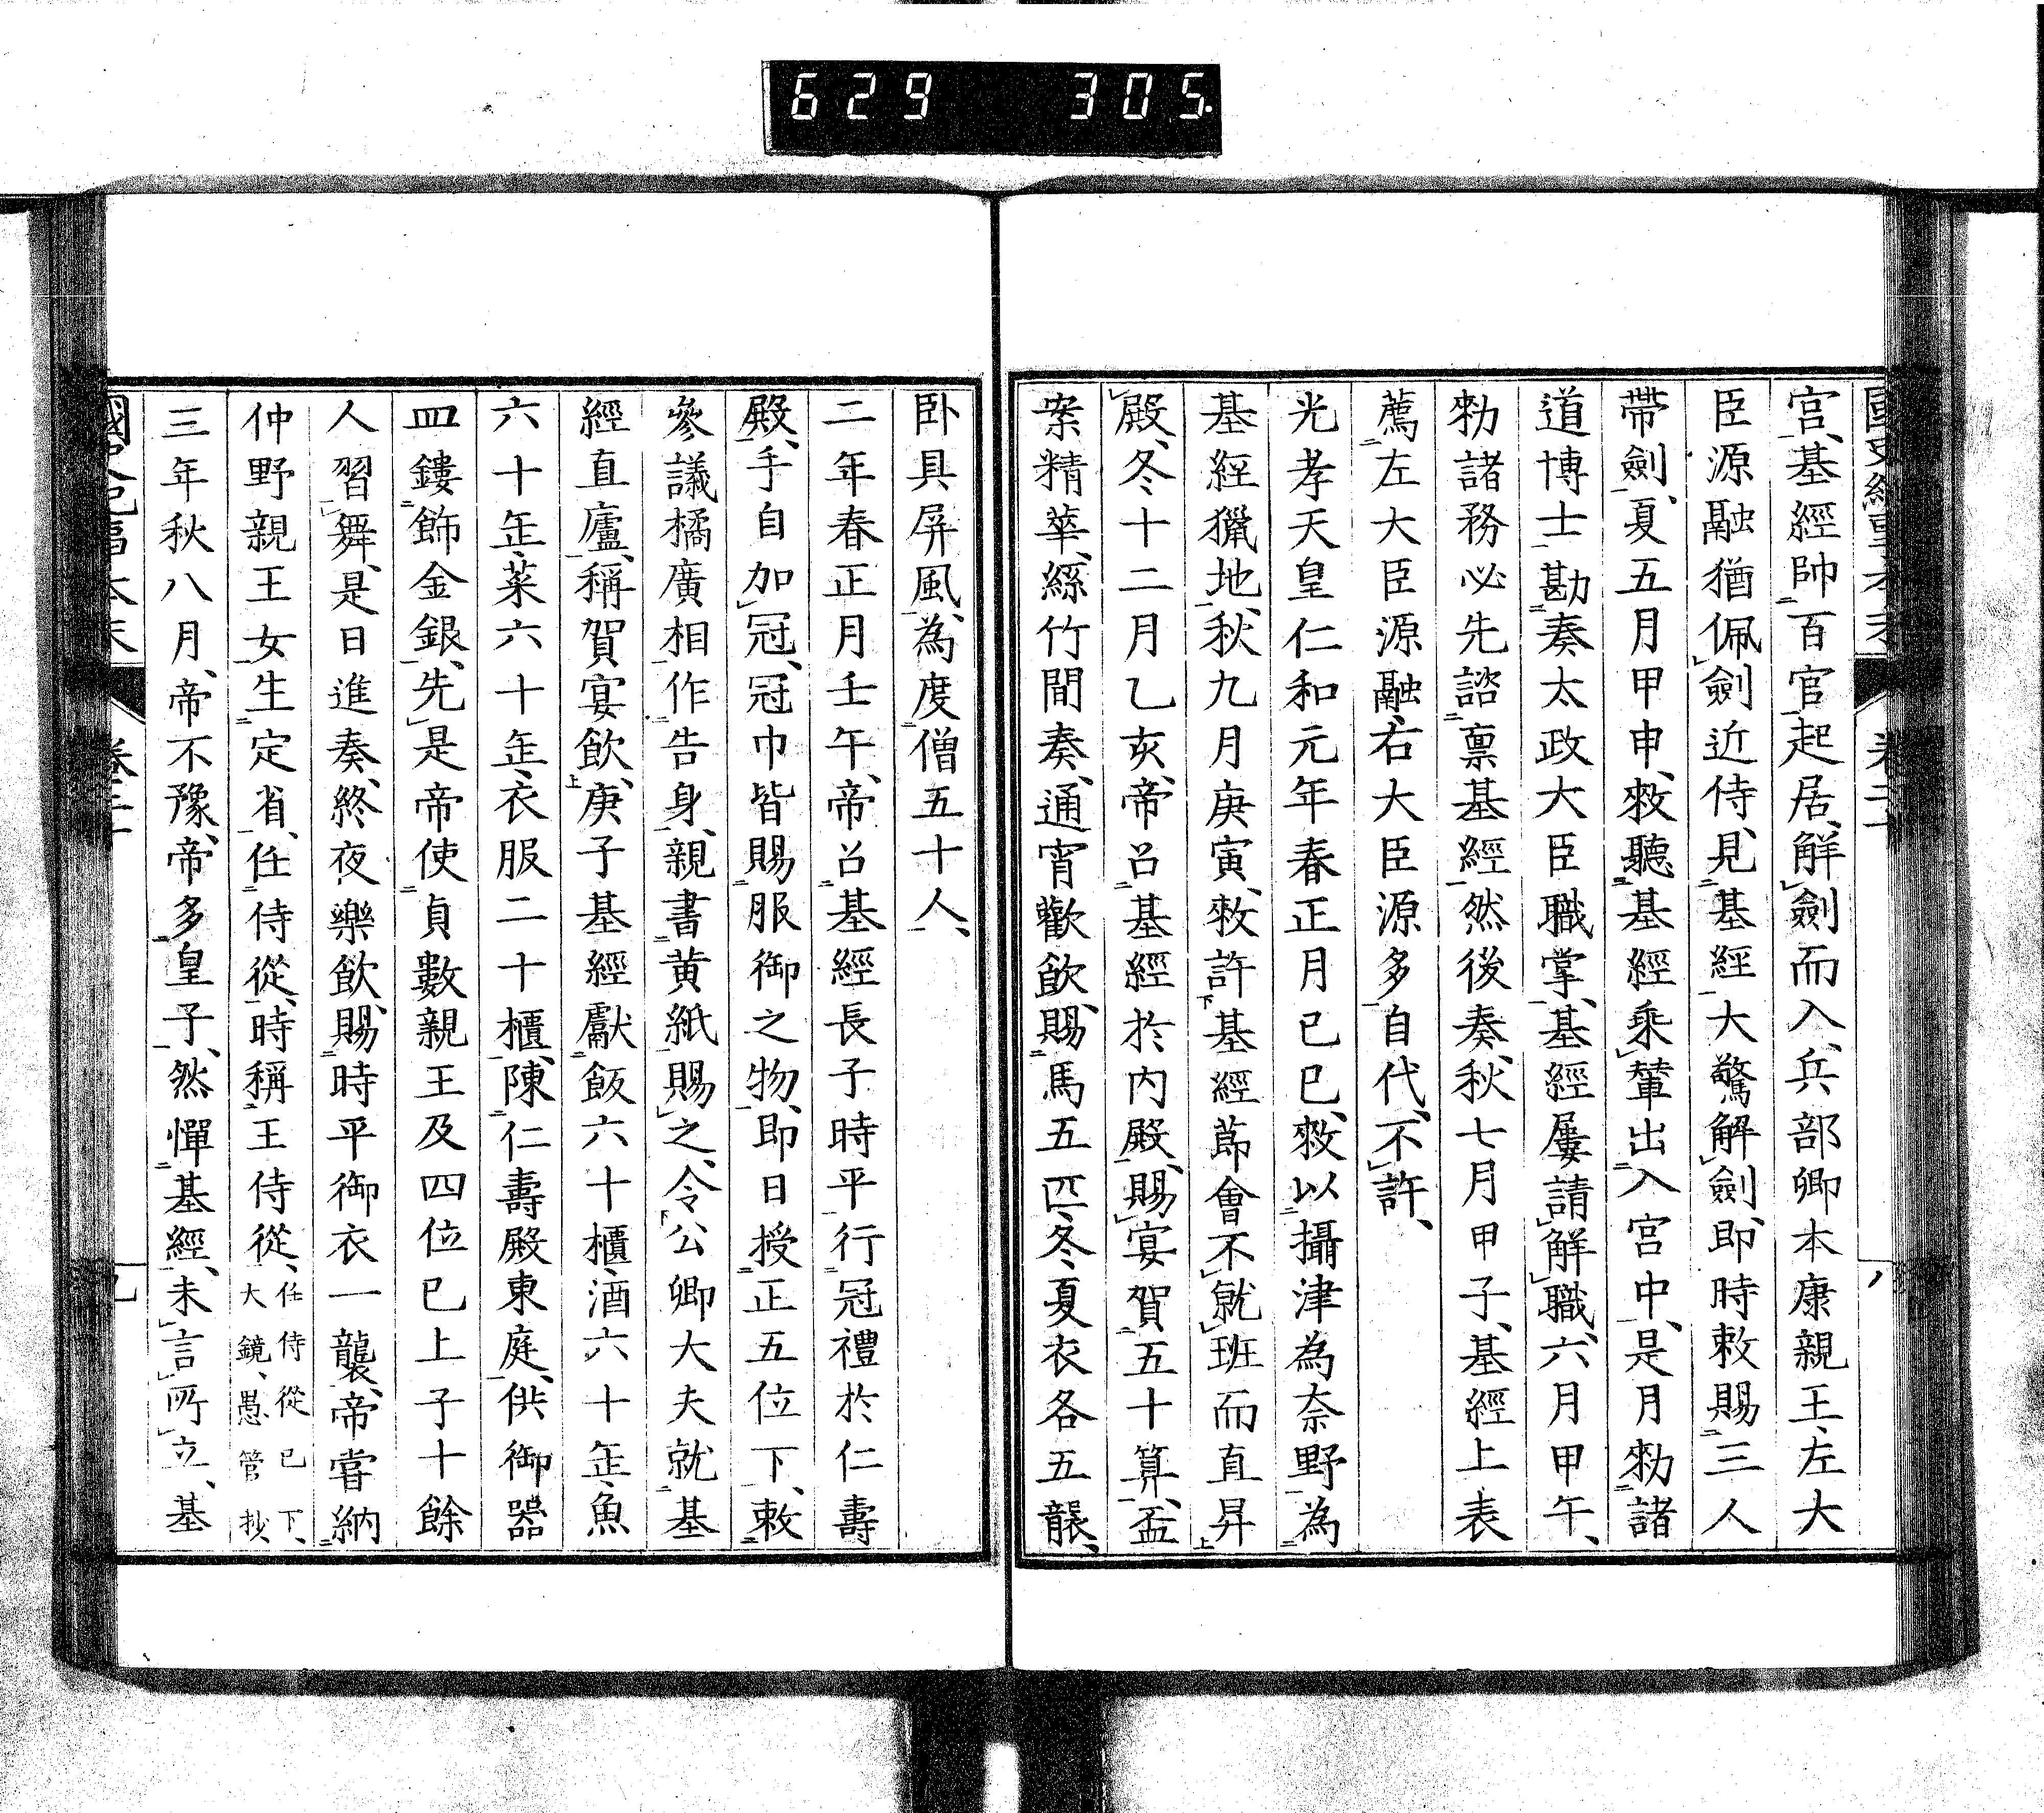 629 305.
宮、基經帥百官起居、解劍而入、兵部卿本康親王、左大
臣源融猶佩劍近侍、見基經大驚解劍、即時敕賜三人
帶劍、夏五月甲申、敕聽基經乘輦出入宮中、是月勑諸
道博士勘奏太政大臣職掌、基經屢請解職、六月甲午、
勑諸務必先諮禀基經然後奏、秋七月甲子、基經上表
薦左大臣源融、右大臣源多自代、不許、
光孝天皇仁和元年春正月己巳、敕以攝津為奈野為
基經獵地、秋九月庚寅、敕許基經節會不就班而直昇
殿、冬十二月乙亥、帝召基經於內殿、賜宴賀五十算、盃
案精華、絲竹間奏、通宵歡飲、賜馬五匹、冬夏衣各五襲、
臥具屏風、為度僧五十人、
二年春正月壬午、帝召基經長子時平行冠禮於仁壽
殿、手自加冠、冠巾皆賜服御之物、即日授正五位下、敕
參議橘廣相作告身、親書黃紙賜之、令公卿大夫就基
經直廬、稱賀宴飲、庚子基經獻飯六十櫃、酒六十缶、魚
六十缶、菜六十缶、衣服二十櫃、陳仁壽殿東庭、供御器
皿鏤飾金銀、先是帝使貞數親王及四位已上子十餘
人習舞、是日進奏、終夜樂飲、賜時平御衣一襲、帝嘗納
仲野親王女生定省、任侍從、時稱王侍從、任侍從已下、大鏡、愚管抄、
三年秋八月、帝不豫、帝多皇子、然憚基經、未言所立、基